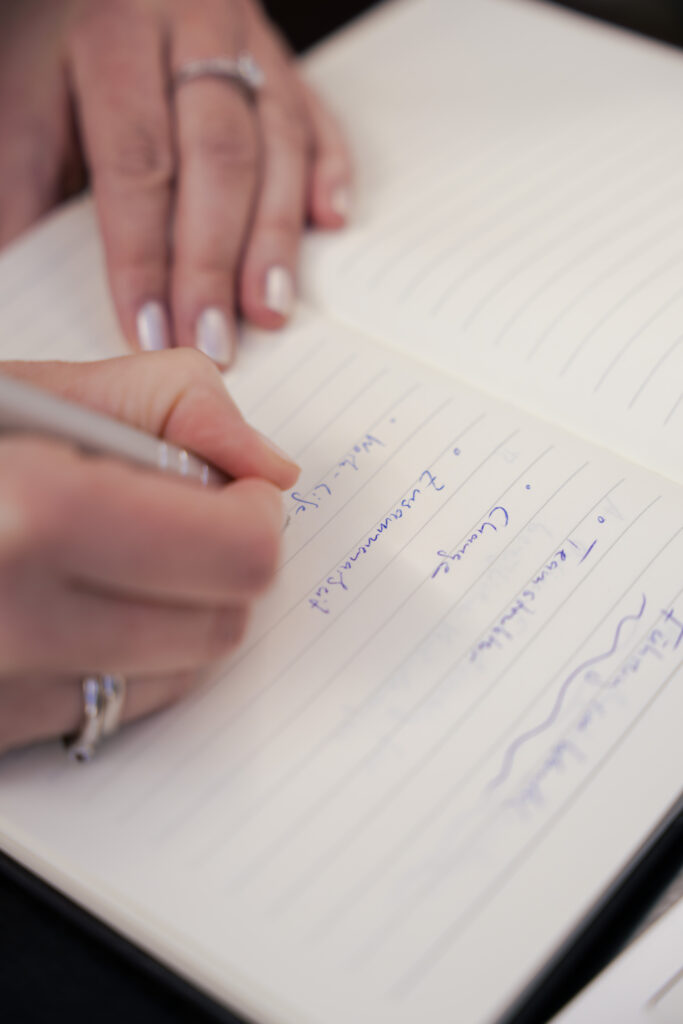 Führung im Wandel
• Teamstruktur
• Change
• Zusammenarbeit
• Work-Life-